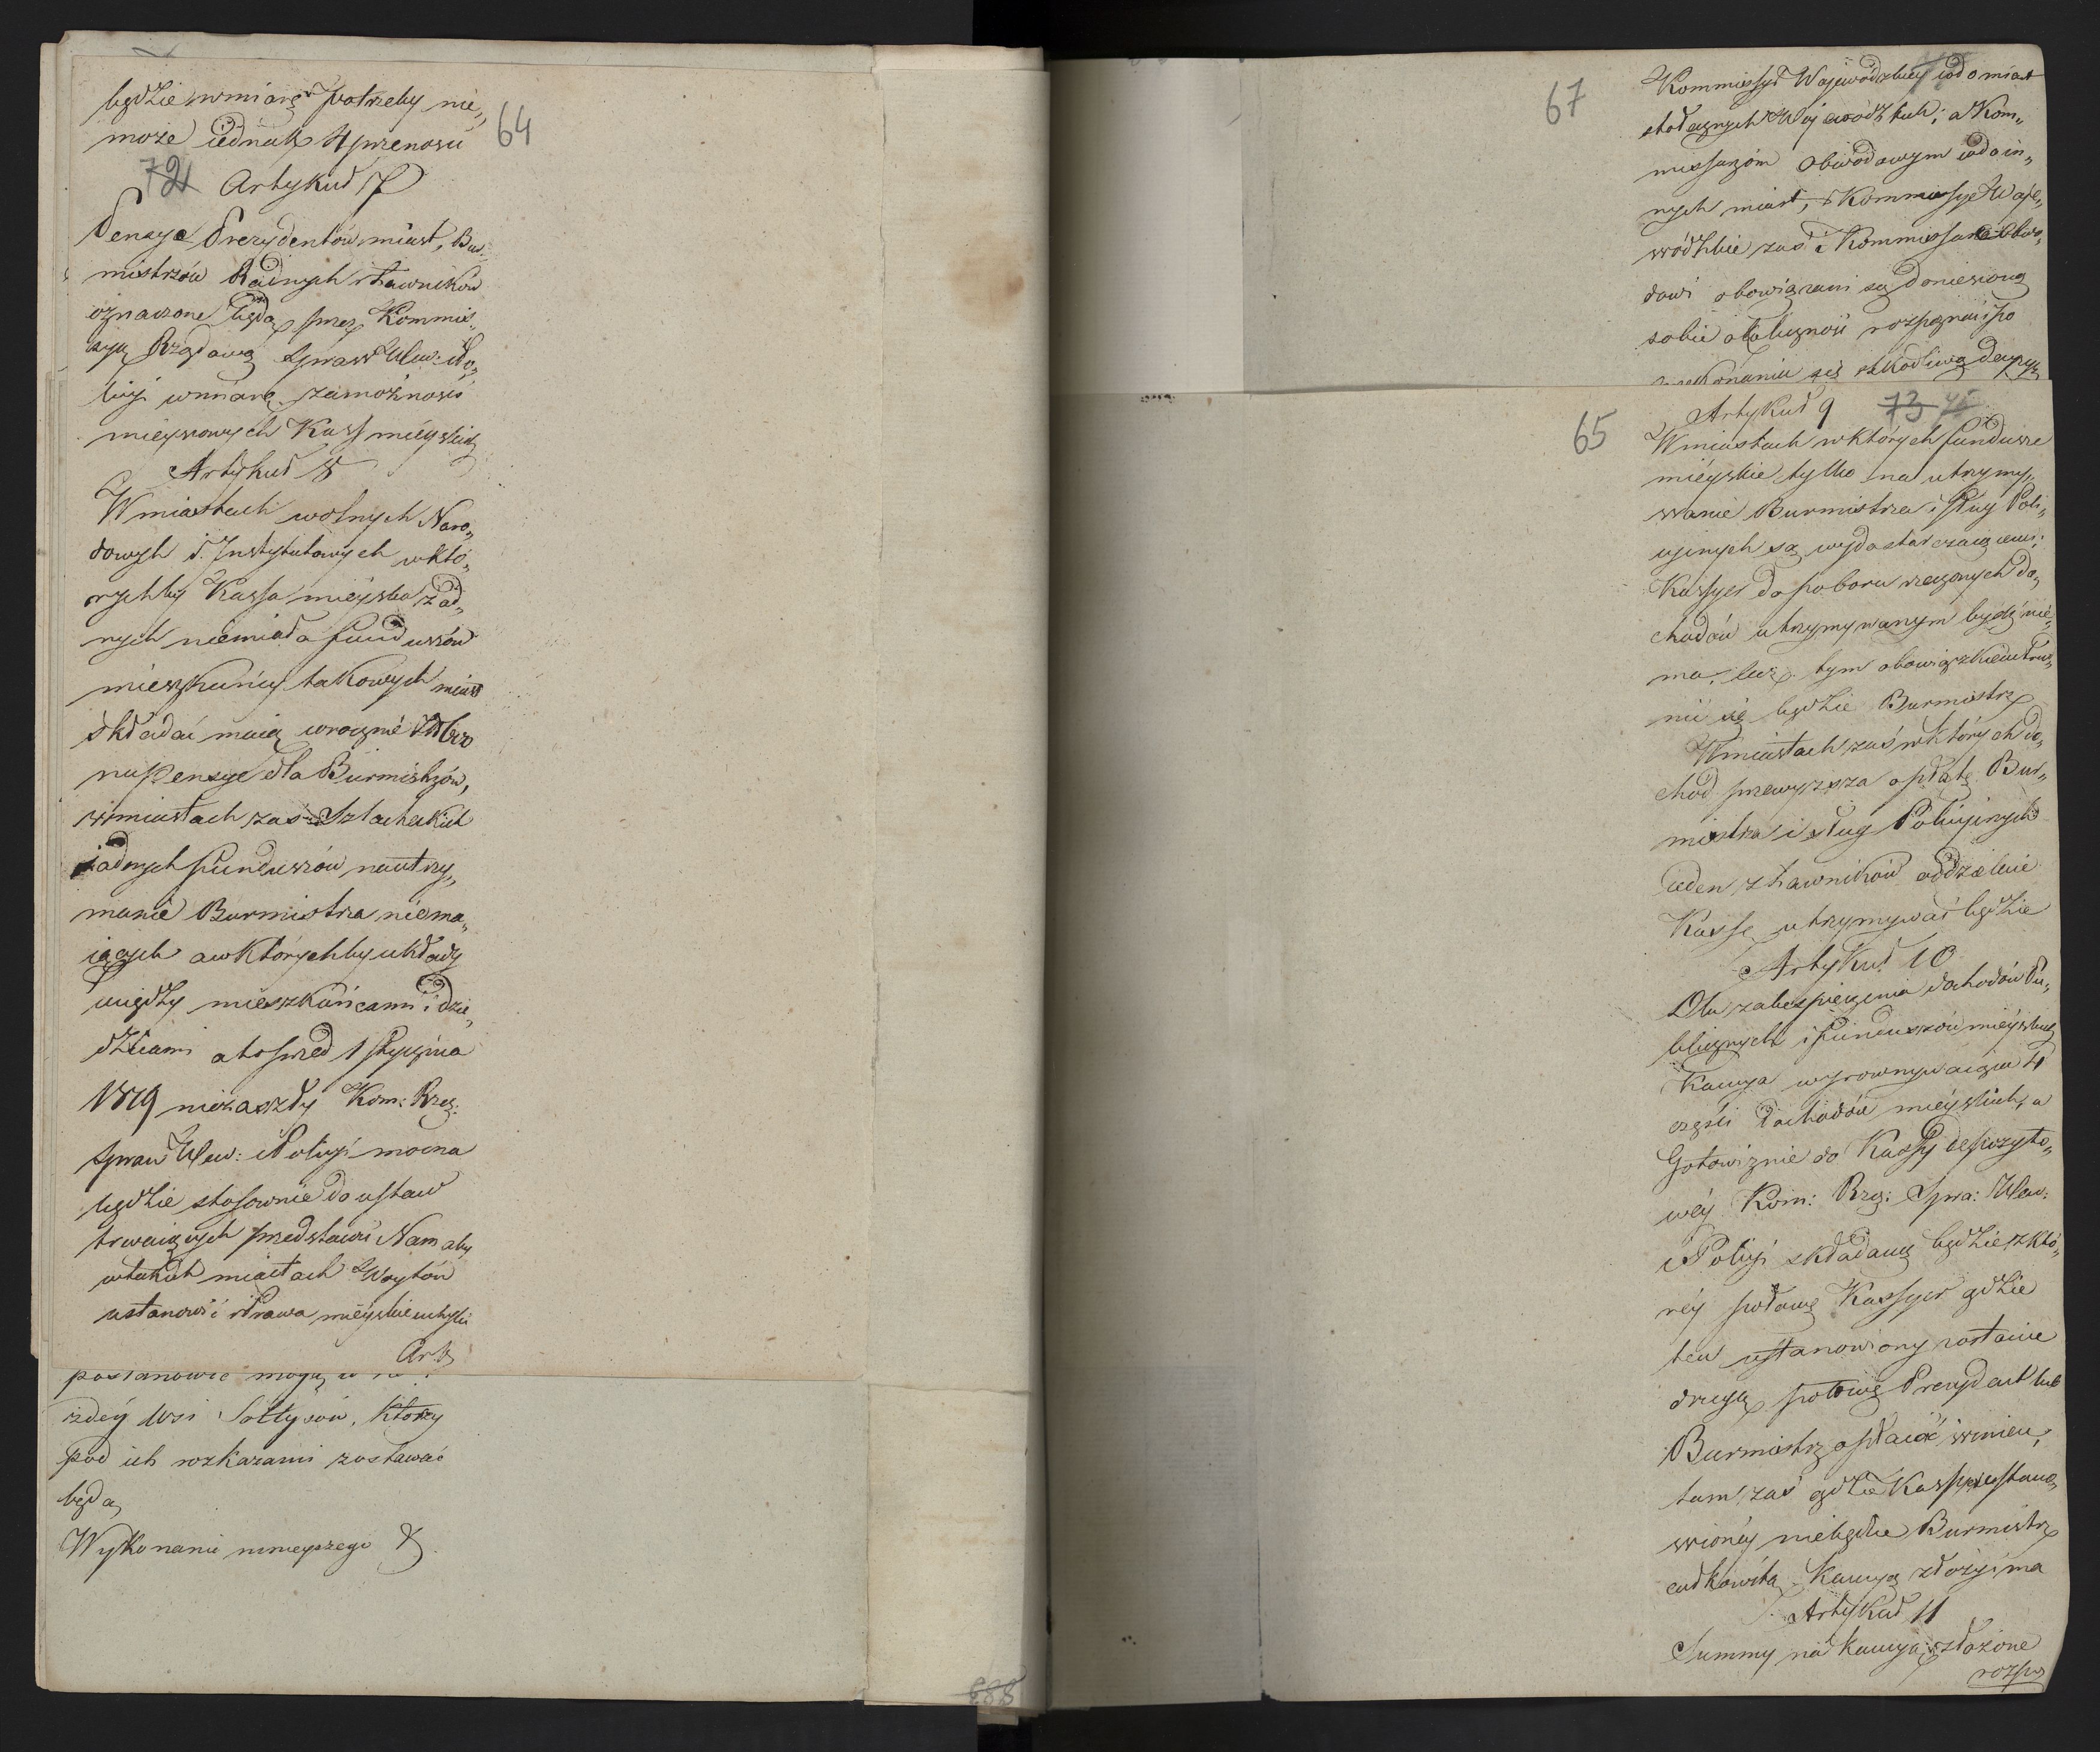 będzie w miarę potrzeby nie„
może iednak 4 przenosić
64
72
Artykuł 7
Pensye Prezydentów miast, Bur„
mistrzów Radnych i Ławników
oznaczone będą przez Kommis„
syą Rządową Spraw Wew: i Po„
licyi w miarę zamożności
mieyscowych Kass mieyskich
Artykuł 8
W miastach wolnych Naro„
dowych i Instytutowych w któ„
rychby Kassa mieyska żad„
nych niemiała funduszów
mieszkańcy takowych miast
składać maią wrocznie
na pensye dla Burmistrzów,
w miastach zaś Szlacheckich
żadnych funduszów na utrzy„
manie Burmistrza niema„
iących a w którychby układy
między mieszkańcami i dzie„
dzicami a to przed 1 Stycznia
1819 niezaszły Kom: Rzą:
Spraw Wew: i Policyi mocna
będzie stosownie do ustaw
trwaiących przedstawić Nam aby
w takich miastach Woytów
ustanowić i Prawa mieyskie uchylić
Art
postanowić mogą w
żdéy wsi Sołtysów, którzy
pod ich rozkazami zostawać
będą
Wykonanie ninieyszego &
888
67
Kommissyi Woiewódzkiey co do miast
stołecznych Woiewódzkich; a Kom„
missarzom Obwodowym co do in„
nych miast, Kommissye Woie„
wódzkie zaś i Kommissarze Obwo„
dowi obowiązani są doniesioną
sobie okoliczność rozpoznać i po
przekonaniu się
65
Artykuł 9
73
W miastach w których fundusze
mieyskie tylko na utrzymy„
wanie Burmistrza i sług Poli„
cyinych są wydostarczaiącemi;
Kassyer do poboru rzeczonych do„
chodów utrzymywanym bydź nie„
ma, lecz tym obowiązkiem trud„
nić się będzie Burmistrz
W miastach zaś w których do„
chód przewyższa opłatę Bur„
mistrza i sług Policyinych
ieden z Ławników oddzielnie
Kassę utrzymywać będzie
Artykuł 10
Dla zabespieczenia dochodów Pu„
blicznych i funduszów mieyskich
Kaucya wyrownywaiąca 4
części dochodów mieyskich, a
Gotowiznie do Kassy depozyto„
wéy Kom: Rzą: Spra: Wew:
i Policyi składaną będzie, z któ„
réy połowę Kassyer gdzie
ten ustanowiony zostanie
drugą połowę Prezydent lub
Burmistrz opłacić winien,
tam zaś gdzie Kassyer ustano„
wiony niebędzie Burmistrz
całkowitą Kaucyą złożyć ma
Artykuł 11
Summy na Kaucyą złożone
rozpo